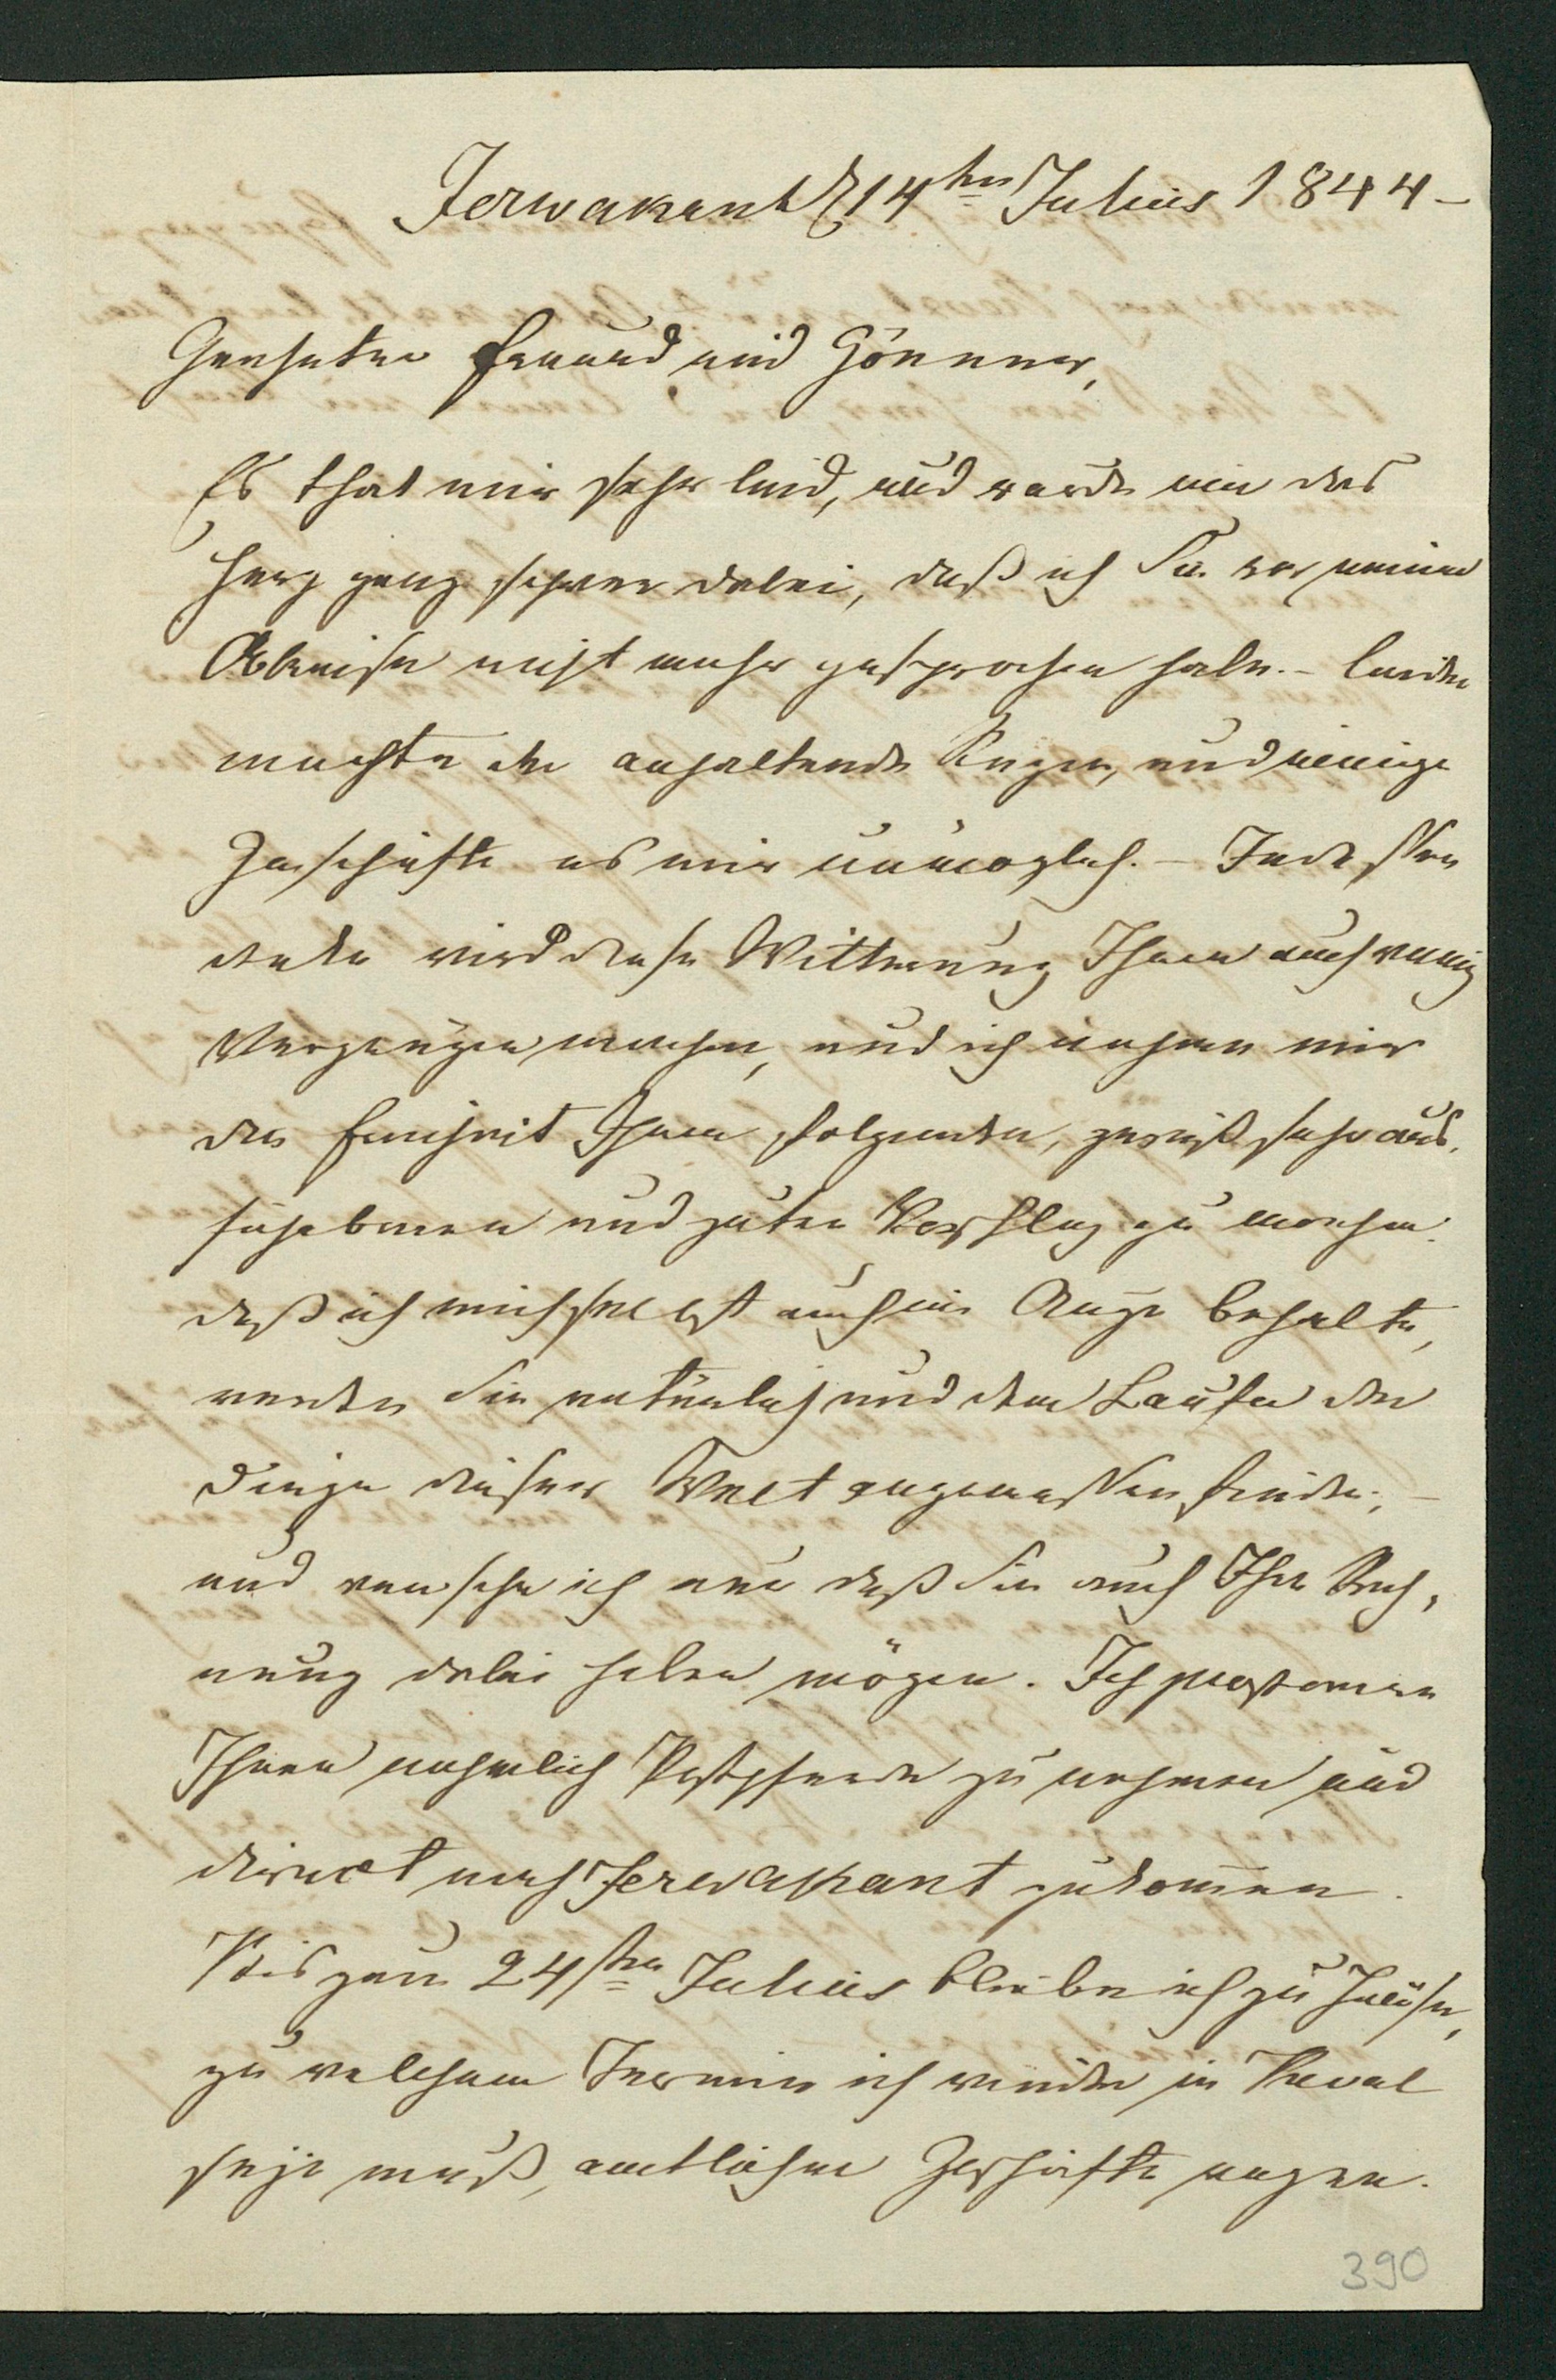 Jerwakant d 14ten Julius 1844 –
Geehrter Freund und Gönner,
Es that mir sehr leid, und wurde mir das
Herz ganz schwer dabei, daß ich Sie vor meiner
Abreise nicht mehr gesprochen habe. – Leider
machte der anhaltende Regen, und einige
Geschäfte es mir unmöglich. – Indessen
wird diese Witterung Ihnen auch wenig
Vergnügen machen, und ich nehme mir
die Freiheit Ihnen folgenden, gewiß sehr aus,
führbaren und guten Vorschlag zu machen.
daß ich mich selbst auch im Auge behalte,
werden Sie natürlich und dem Laufe der
Dinge dieser Welt angemessen finden; –
und wünsche ich nur daß Sie auch Ihre Rech,
nung dabei haben mögen. Ich proponire
Ihnen nehmlich Postpferde zu nehmen und
direct nach Jerwakant zu kommen.
Bis zum 24sten Julius bleibe ich zu Hause,
zu welchem Termin ich wieder in Reval
seyn muß, amtlicher Geschäfte wegen.
390